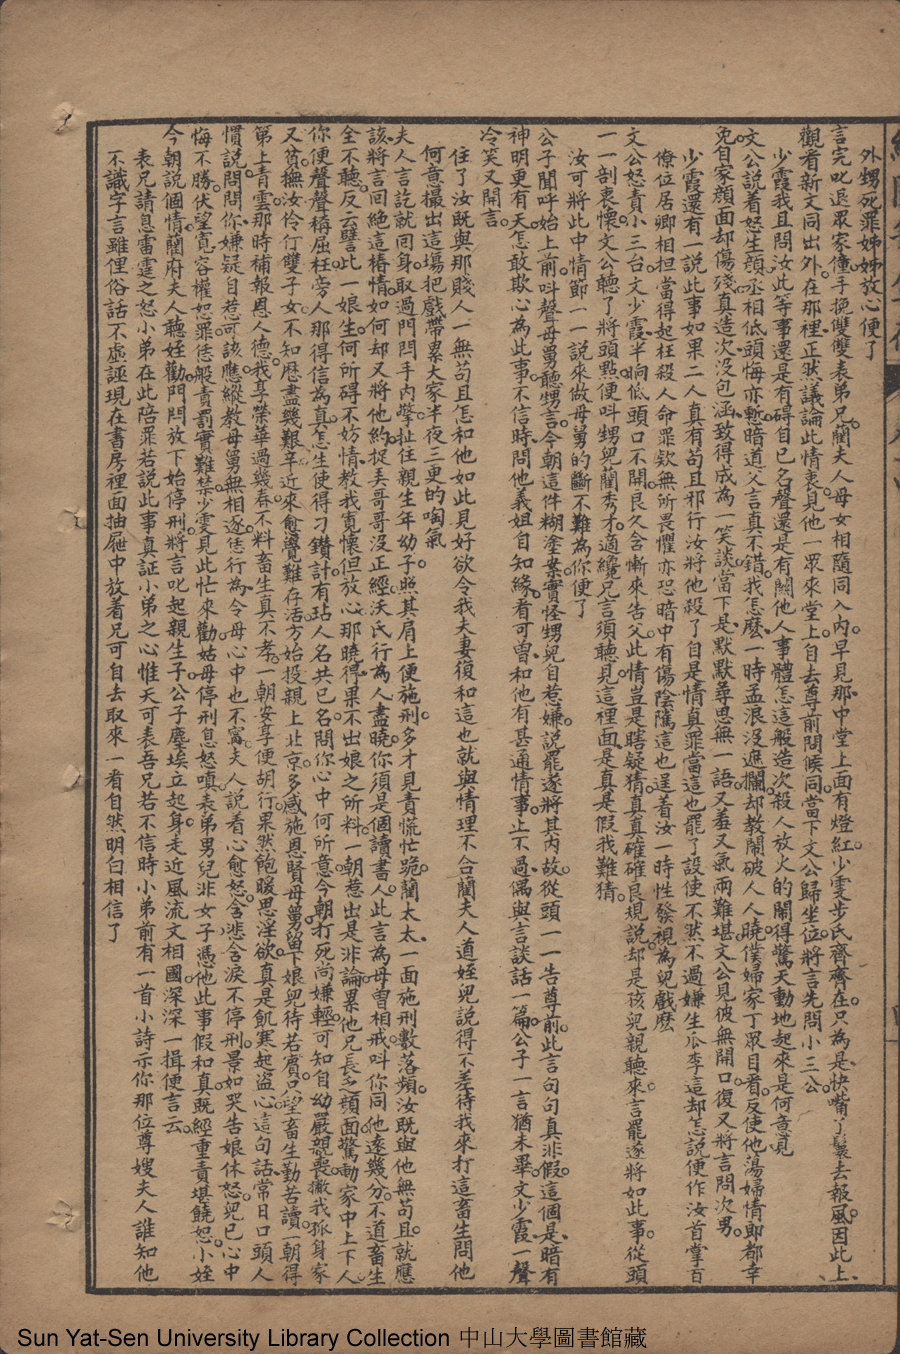 外甥死罪姊姊放心便了
言完叱退眾家僮手挽雙雙表弟兄蘭夫人母女相隨同入內早見那中堂上面有燈紅少雯步氏齊齊在只為是快嘴了鬟去報風因此上
觀看新文同出外在那裡正然議論此情衷見他一眾來堂上自去尊前問候同當下文公歸坐位將言先問小三公
少霞我且問汝此等事還是有碍自已名聲還是有關他人事體怎這般造次殺人放火的鬧得驚天動地起來是何意見
文公說着怒生顔丞相低頭悔亦慚暗道父言真不錯我怎麽一時孟浪沒遮攔却教鬧破人人曉僕婦家丁眾目看反使他蕩婦情郎都幸
免自家顔面却傷殘真造次沒包涵致得成為一笑談當下是默默尋思無一語又羞又氣兩難堪文公見彼無開口復又將言問次男
少霞還有一說此事如果二人真有苟且邪行汝將他殺了自是情真罪當這也罷了設使不然不過嫌生瓜李這却怎說便作汝首掌百
僚位居鄉相担當得起枉殺人命罪欵無所畏懼亦恐暗中有傷陰隲這也逞着汝一時性發視為兒戲麽
文公怒責小三台文少霞半晌低頭口不開良久含慚來告父此情豈是瞎疑猜真真確確良規說却是孩兒親聽來言罷遂將如此事從頭
一一剖衷懷文公聽了將頭點便呌甥兒蘭秀才適纔兄言須聽見這裡面是真是假我難猜
汝可將此中情節一一說來做母舅的斷不難為你便了
公子聞呼始上前呌聲母舅聽甥言今朝這件糊塗案實怪甥兒自惹嫌說罷遂將其內故從頭一一告尊前此言句句真非假這個是暗有
神明更有天怎敢欺心為此事不信時問他義姐自知緣看可曾和他有甚通情事止不過偶與言談話一篇公子一言猶未畢文少霞一聲
冷笑又開言
住了汝既與那賤人一無苟且怎和他如此見好欲令我夫妻復和這也就與情理不合蘭夫人道姪兒說得不差待我來打這畜生問他
何意撮出這塲把戲帶累大家半夜三更的啕氣
夫人言訖就回身取過門閂手內擎扯住親生年幼子照其肩上便施刑多才見責慌忙跪蘭太太一面施刑數落頻汝既與他無苟且就應
該將言回絕這椿情如何却又將他約捉美哥哥沒正經沃氏行為人盡曉你須是個讀書人此言為母曾相戒呌你同他遠幾分不道畜生
全不聽反云譬此一娘生何所碍不妨情教我寬懷但放心那曉得果不出娘之所料一朝惹出是非論累他兄長乏頭面驚動家中上下人
你便聲聲稱屈枉旁人那得信為真怎生使得刁鑽計有玷人名共已名問你心中何所意今朝打死尚嫌輕可知自幼嚴親喪撇我孤身家
又貧撫汝伶仃雙子女不知歷盡幾艱辛近來愈覺難存活方始投親上北京多感施恩賢母舅留下娘兒待若賓只望畜生勤苦讀一朝得
第上青雲那時補報恩人德我享榮華過幾春不料畜生真不孝一朝安享便胡行果然飽暖思淫欲真是飢寒起盗心這句話常日口頭人
慣說問問你嫌疑自惹可該應縱教母舅無相逐恁行為今母心中也不寗夫人說着心愈怒含悲含淚不停刑景如哭告娘休怒兒已心中
悔不勝伏望寬容權恕罪恁般責罰實難禁少雯見此忙來勸姑母停刑息怒嗔表弟男兒非女子憑他此事假和真既經重責堪饒恕小姪
今朝說個情蘭府夫人聽姪勸門閂放下始停刑將言叱起親生子公子塵埃立起身走近風流文相國深深一揖便言云
表兄請息雷霆之怒小弟在此陪罪若説此事真証小弟之心惟天可表吾兄若不信時小弟前有一首小詩示你那位尊嫂夫人誰知他
不識字言雖俚俗話不虛誣現在書房裡面抽屜中放着兄可自去取來一看自然明白相信了
Sun Yat-Sen University Library Collection 中山大學圖書館藏